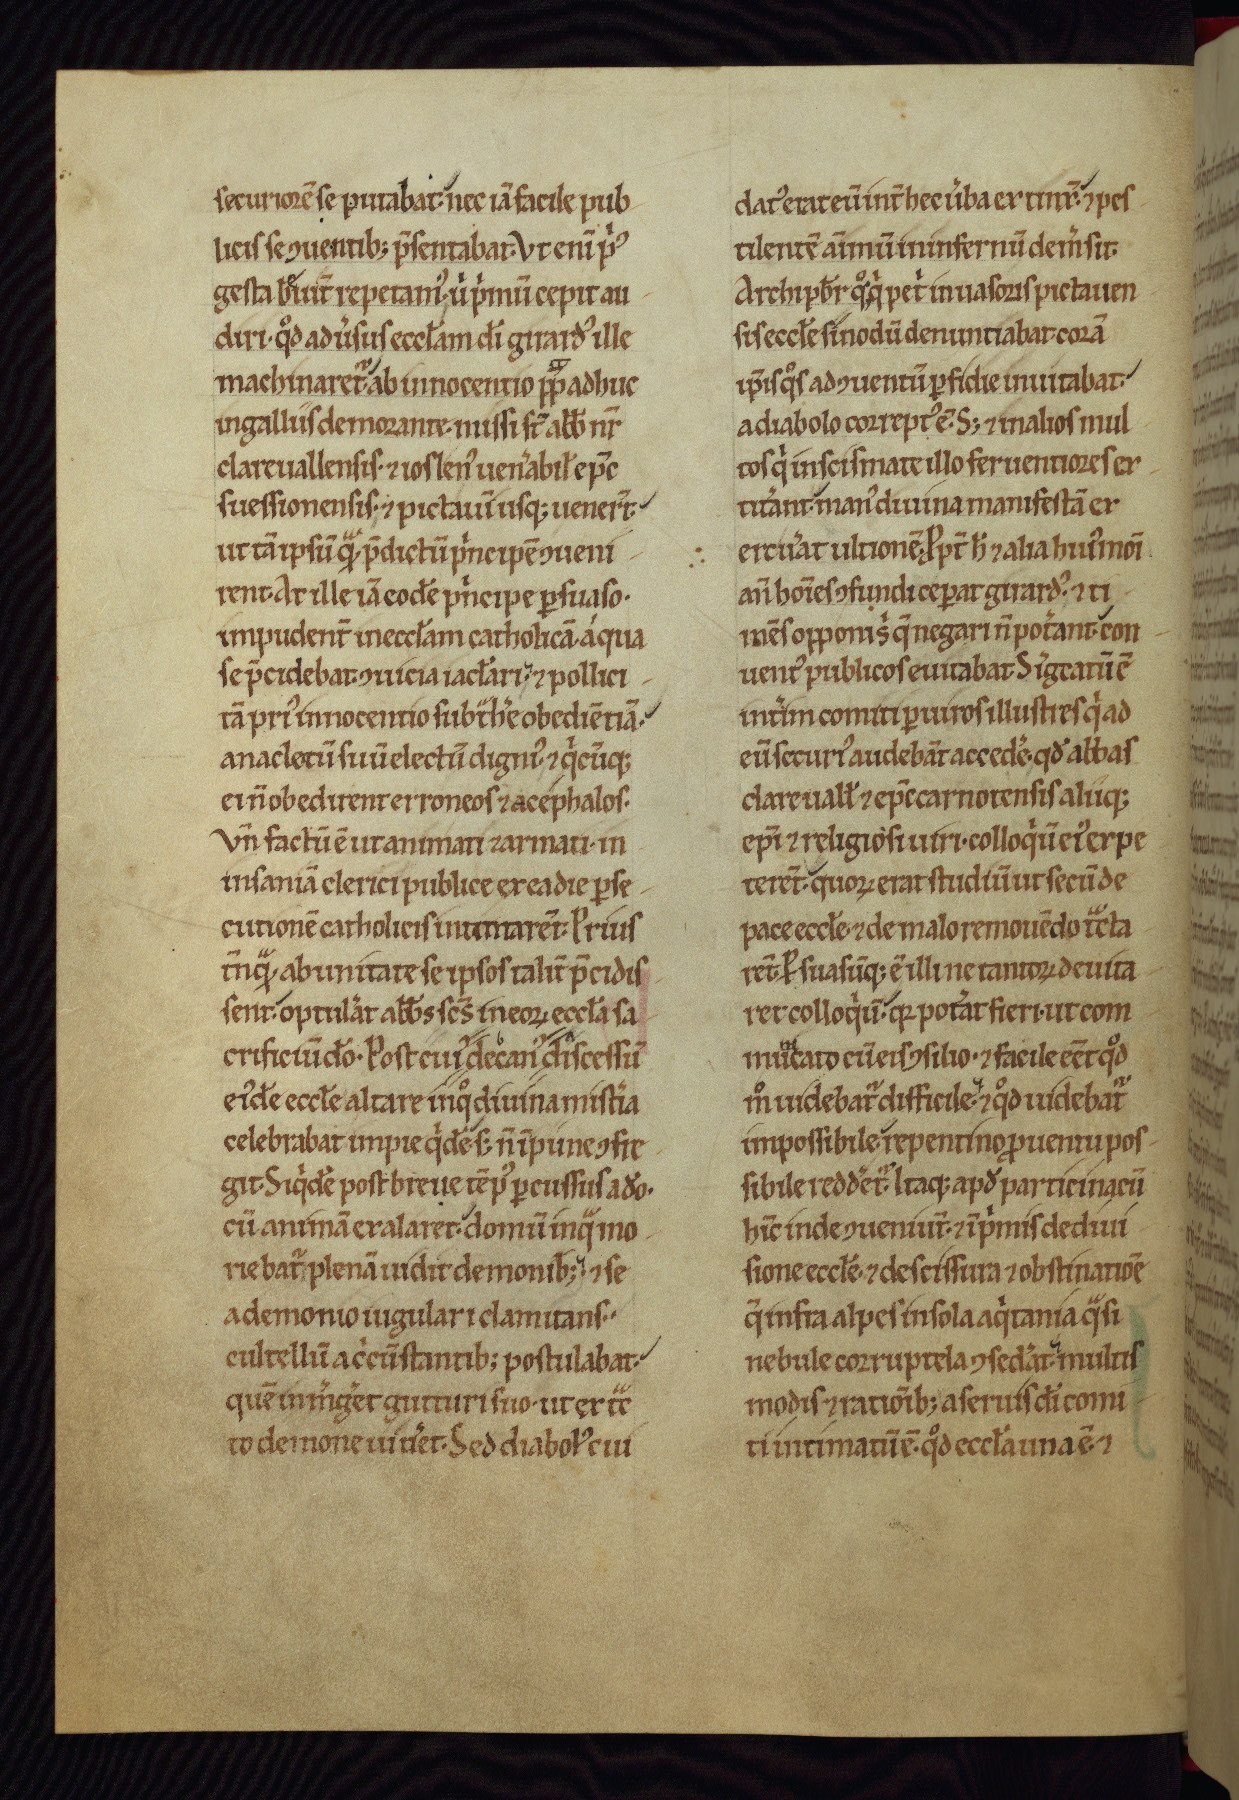 securiorē se putabat· nec iā facile pub
licis se ꝯuentib; p̄sentabat. Vt enī pͥꝰ
gesta breuit̄ repetamꝰ· ubi pͥmū cepit au
diri· qͦd aduͥsus eccl̄am dī girardꝰ ille
machinaret᷑· ab innocentio pp̄a adhuc
in galliis demorante· missi st̄ abb̄ nr̄
clareuallensis· ⁊ ioslenꝰ uen̄abil̄ ep̄c
suessionensis· ⁊ pictauī usq; uenert̄·
ut tā ipsū qᷓ p̄dictū pͥncipē ꝯueni
rent. At ille iā eodē pͥncipe ꝑsuaso·
impudent̄ in eccl̄am catholicā· á qua
se p̄cidebat· ꝯuicia iactari· ⁊ pollici
tā priꝰ innocentio subt̄he obediētiā·
anacletū suū electū dignꝰ· ⁊ qͥcūq;
ei n̄ obedirent erroneos ⁊ acephalos·
Vn̄ factū ē ut animati ⁊ armati· in
insaniā clerici publice ex ea die ꝑse
cutionē catholicis intentarēt. Prius
t̄n qᷓ ab unitate se ipsos talit̄ p̄cidis
sent· optulat̄ abb̄s sc̄s in eoꝝ eccl̄a sa
crificiū dō. Post cuiꝰ decanꝰ discessū
eiꝰdē eccl̄e altare in qͦ diuina mist̄ia
celebrabat impie qͥdē· s; n̄ īpune ꝯfre
git. Siqͥdē post breue tēpꝰ ꝑcussus a dō·
cū animā exalaret· domū in qᷓ mo
riebat᷑ plenā uidit demonib;· ⁊ se
a demonio iugulari clamitans·
cultellū a cͥcūstantib; postulabat·
quē infͥgeret gutturi suo· ut extᷓc
to demone uiueret. Sed diabolꝰ cui
datꝰ erat eū int̄ hec uͥba extinx̄· ⁊ pes
tilentē aīmū in infernū demͥsit.
Archipb̄r qͦqͣ pet̄ inuasoris pictauen
sis eccl̄e sinodū denuntiabat· corā
ip̄is qͦs ad ꝯuentū ꝑfidie inuitabat·
a diabolo correptꝰ ē. S; ⁊ in alios mul
tos qͥ in scismate illo feruentiores ex
titͣant· manꝰ diuina manifestā ex
ercuͣat ultionē. Ppt̄ h̄ ⁊ alia huiꝰmōi
an̄ hoīes ꝯfundi cepat girardꝰ· ⁊ ti
mēs opponi sͥ q̄ negari n̄ potͣant· con
uentꝰ publicos euitabat. Sigͥcatū ē
intͥim comiti ꝑ uiros illustres qͥ ad
eū securiꝰ audebāt accedē· qd̄ abbas
clareuall̄ ⁊ ep̄c carnotensis aliiq;
epī ⁊ religiosi uiri· colloqͥū eiꝰ expe
terēt· quoꝝ erat studiū ut secū de
pace eccl̄e· ⁊ de malo remouēdo tᷓcta
rēt. Psuasūq; ē illi ne tantoꝝ deuita
ret colloqͥū· qꝛ potat̄ fieri· ut com
municato cū eis ꝯsilio· ⁊ facile eēt qͦd
mͦ uidebat᷑ difficile· ⁊ qͦd uidebat᷑
impossibile· repentino ꝓuentu pos
sibile redderet᷑. Itaq; apd̄ particinacū
hīc inde ꝯueniūt· ⁊ īpͥmis de diui
sione eccl̄e· ⁊ de scissura ⁊ obstinatiōe
q̄ infra alpes in sola aqͥtania qᷓsi
nebule corruptela ꝯsedat̄· multis
modis ⁊ ratiōib; a seruis dī comi
ti intimatū ē· qͦd eccl̄a una ē· ⁊